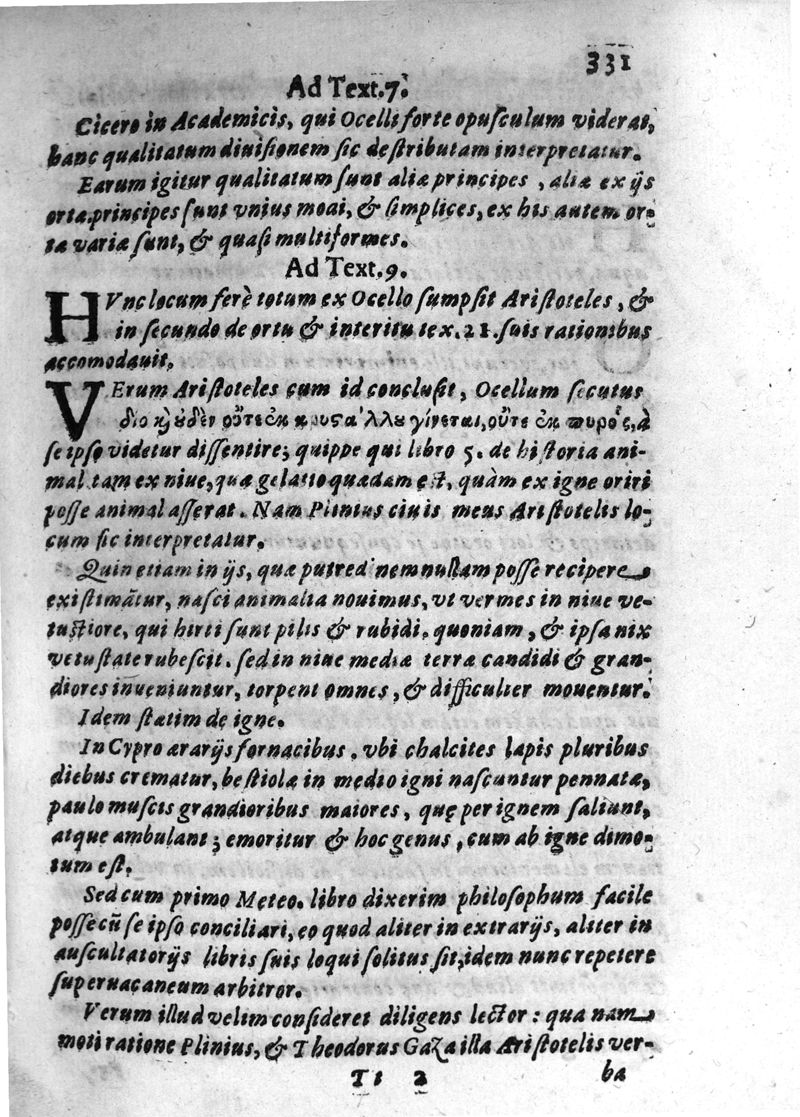 331
Ad Text.7.
Cicero in Academicis, qui Ocelli forte opusculum viderat,
hanc qualitatum diuisionem sic destributam interpretatur.
Earum igitur qualitatum sunt aliæ principes, aliæ ex ijs
ortæ.principes sunt vnius moai, & simplices, ex his autem or-
ta variæ sunt, & quasi multiformes.
Ad Text.9.
HVnc locum ferè totum ex Ocello sumpsit Aristoteles, &
in secundo de ortu & interitu tex.21.suis rationibus
accomodauit.
VErum Aristoteles cum id conclusit, Ocellum secutus
διο κ̀ ουδὲν οὔτε ἐκ κρυςάλλου γίνεται, οὔτε ἐκ πυρος, à
se ipso videtur dissentire; quippe qui libro 5. de historia ani-
mal tam ex niue, quæ gelatio quædam est, quàm ex igne oriri
posse animal asserat. Nam Plinius ciuis meus Aristotelis lo-
cum sic interpretatur.
Quin etiam in ijs, quæ putredinem nullam posse recipere
existimãtur, nasci animalia nouimus, vt vermes in niue ve-
tustiore, qui hirti sunt pilis & rubidi. quoniam, & ipsa nix
vetustate rubescit. sed in niue mediæ terræ candidi & gran-
diores inueniuntur, torpent omnes, & difficulter mouentur.
Idem statim de igne.
In Cypro ærarijs fornacibus, vbi chalcites lapis pluribus
diebus crematur, bestiolæ in medio igni nascuntur pennatæ,
paulo muscis grandioribus maiores, quę per ignem saliunt,
atque ambulant; emoritur & hoc genus, cum ab igne dimo-
tum est.
Sed cum primo Meteo. libro dixerim philosophum facile
posse cũ se ipso conciliari, eo quod aliter in extrarijs, aliter in
auscultatorijs libris suis loqui solitus sit, idem nunc repetere
superuacaneum arbitror.
Verum illud velim consideret diligens lector: qua nam
moti ratione Plinius, & Theodorus Gaza illa Aristotelis ver-
Tt 2 ba